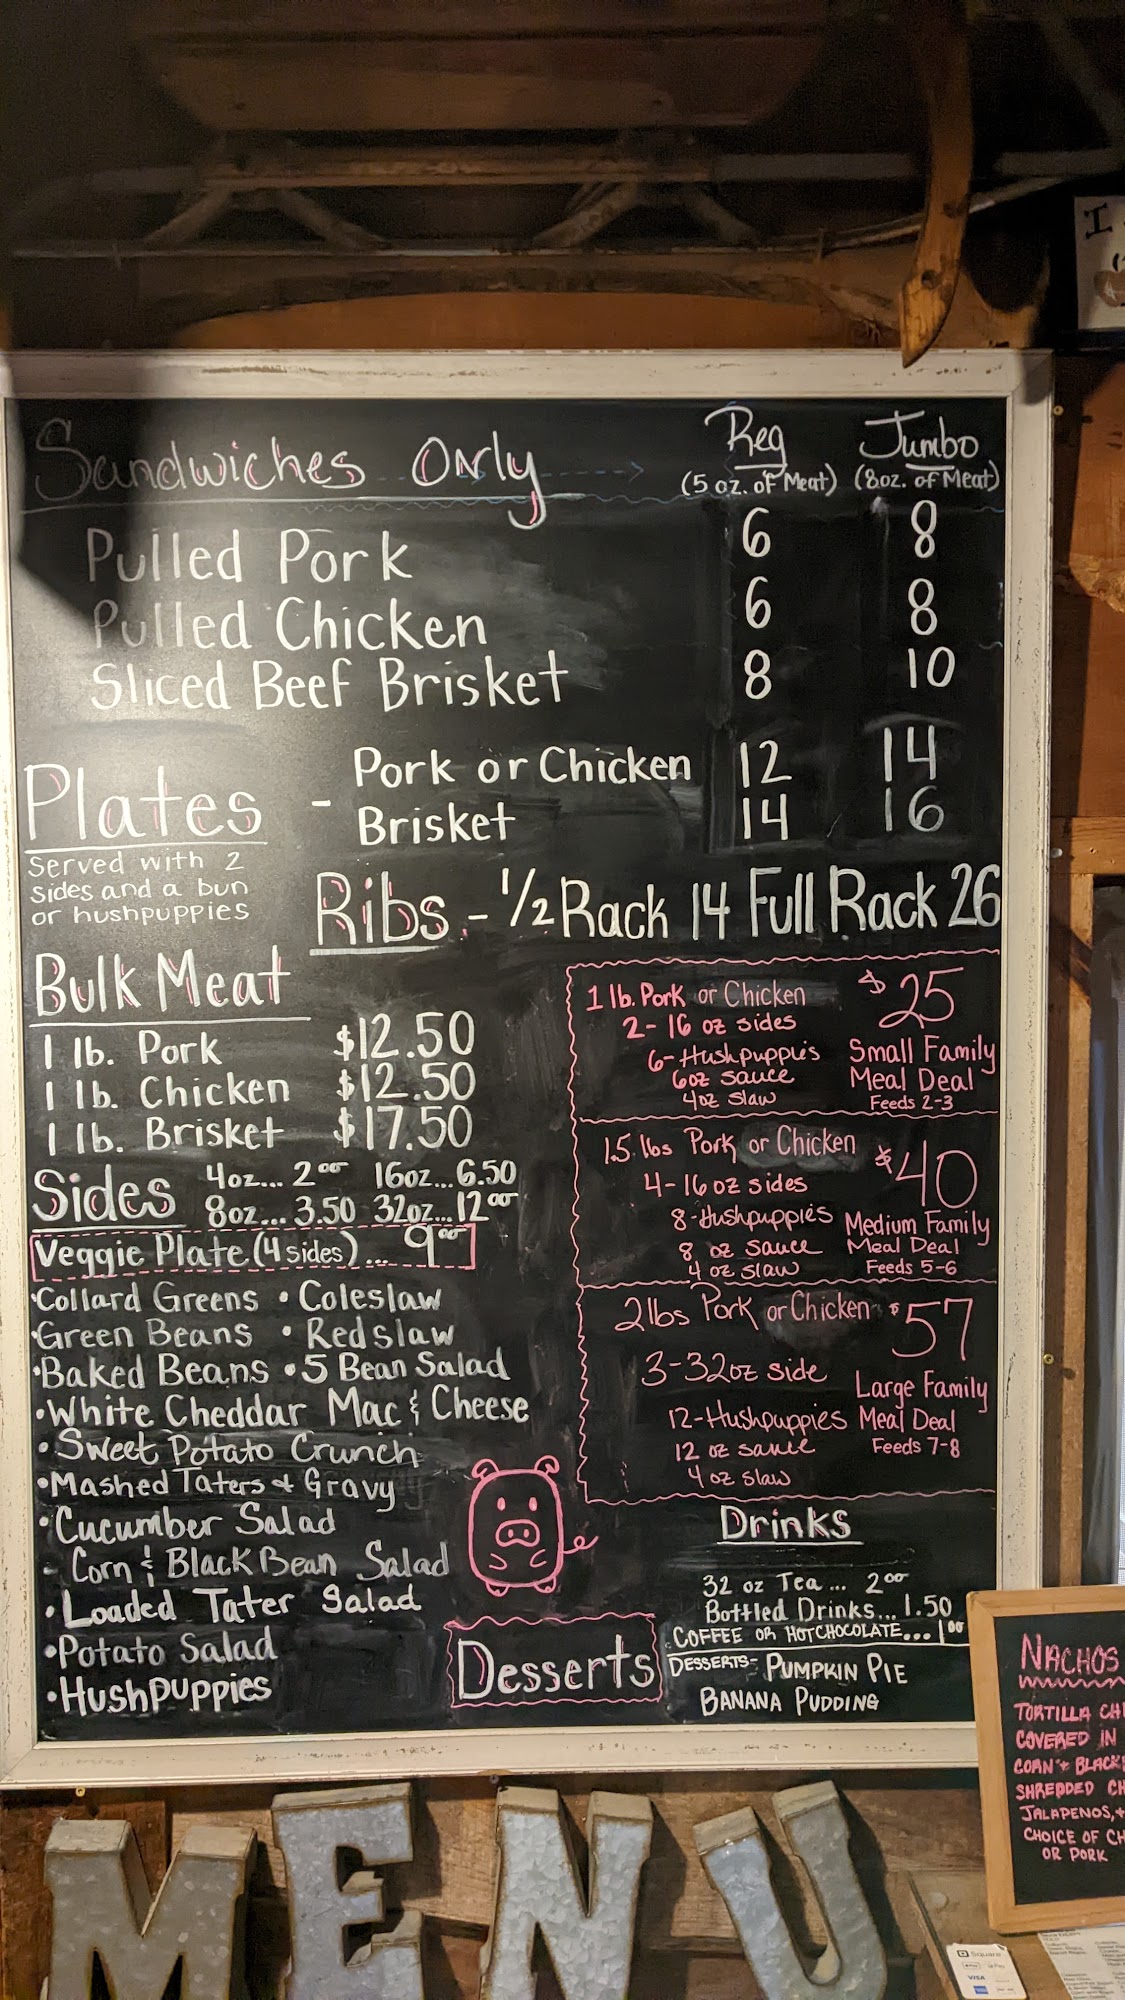 I
Sandwiches Only
Reg Jumbo
(5 oz. of Meat) (8oz. of Meat)
Pulled Pork 6 8
Pulled Chicken 6 8
Sliced Beef Brisket 8 10
Plates - Pork or Chicken 12 14
Brisket 14 16
Served with 2
sides and a bun
or hushpuppies
Ribs - 1/2 Rack 14 Full Rack 26
Bulk Meat
1 lb. Pork $12.50
1 lb. Chicken $12.50
1 lb. Brisket $17.50
Sides 4oz... 2.00 16oz...6.50
8oz... 3.50 32oz...12.00
Veggie Plate (4 sides)... 9.00
•Collard Greens •Coleslaw
•Green Beans •Redslaw
•Baked Beans •5 Bean Salad
•White Cheddar Mac & Cheese
•Sweet Potato Crunch
•Mashed Taters & Gravy
•Cucumber Salad
- Corn & Black Bean Salad
•Loaded Tater Salad
•Potato Salad
•Hushpuppies
1 lb. Pork or Chicken $25
2-16 oz sides
6-Hushpuppies Small Family
6oz sauce Meal Deal
4oz slaw Feeds 2-3
1.5 lbs Pork or Chicken $40
4-16 oz sides
8-Hushpuppies Medium Family
8 oz sauce Meal Deal
4 oz slaw Feeds 5-6
2 lbs Pork or Chicken $57
3-32oz side
Large Family
12-Hushpuppies Meal Deal
12 oz sauce Feeds 7-8
4 oz slaw
Drinks
32 oz Tea... 2.00
Bottled Drinks...1.50
COFFEE OR HOT CHOCOLATE...1.00
Desserts
DESSERTS- PUMPKIN PIE
BANANA PUDDING
NACHOS
TORTILLA
COVERED IN
CORN &
SHREDDED
JALAPENOS, &
CHOICE OF
OR PORK
MENU
Square
Pay
VISA